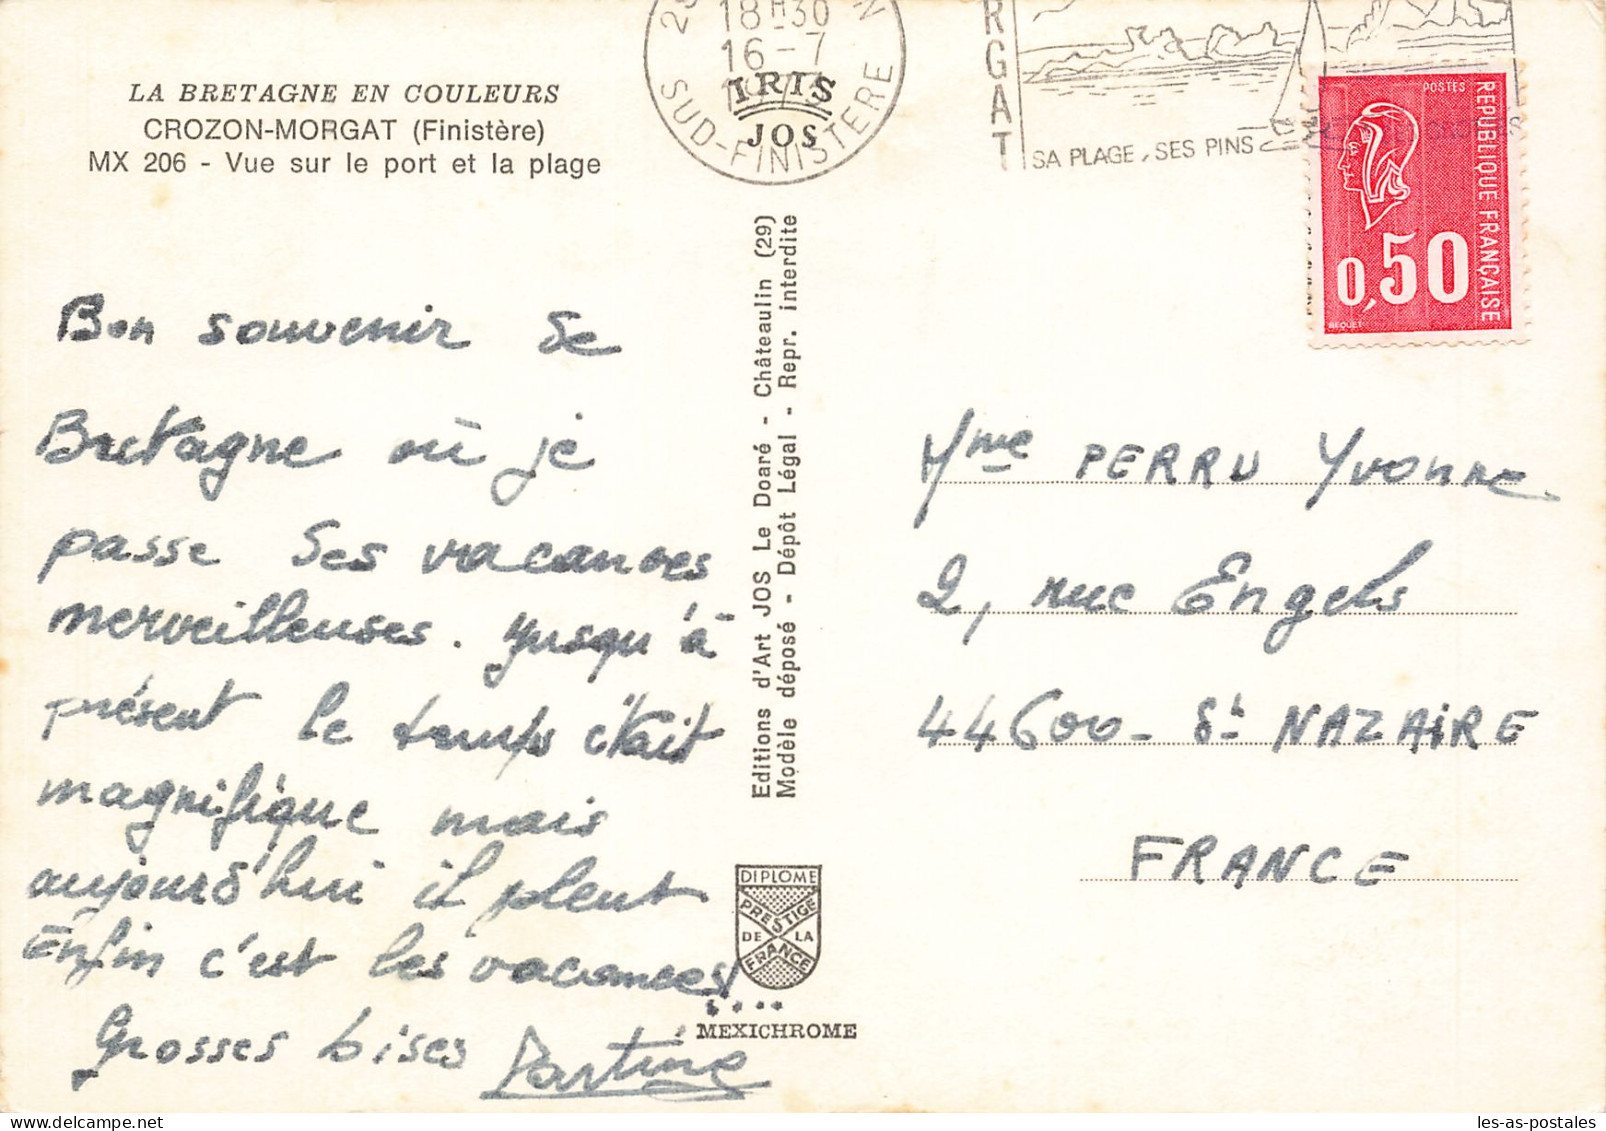 LA BRETAGNE EN COULEURS
CROZON-MORGAT (Finistère)
MX 206 - Vue sur le port et la plage
Bon souvenir de
Bretagne où je
passe des vacances
merveilleuses. Jusqu'à
présent le temps était
magnifique mais
aujourd'hui il pleut
Enfin c'est les vacances!
....
Grosses bises Martine
18H30
16-7
SUD-FINISTERE
IRIS
JOS
Editions d'Art JOS Le Doaré - Châteaulin (29)
Modèle déposé - Dépôt Légal - Repr. interdite
DIPLOME
PRESTIGE
DE LA
FRANCE
MEXICHROME
RGAT
SA PLAGE, SES PINS
POSTES
REPUBLIQUE FRANÇAISE
0,50
BEQUET
Mme PERRU Yvonne
2, rue Engels
44600 - St NAZAIRE
FRANCE
les-as-postales